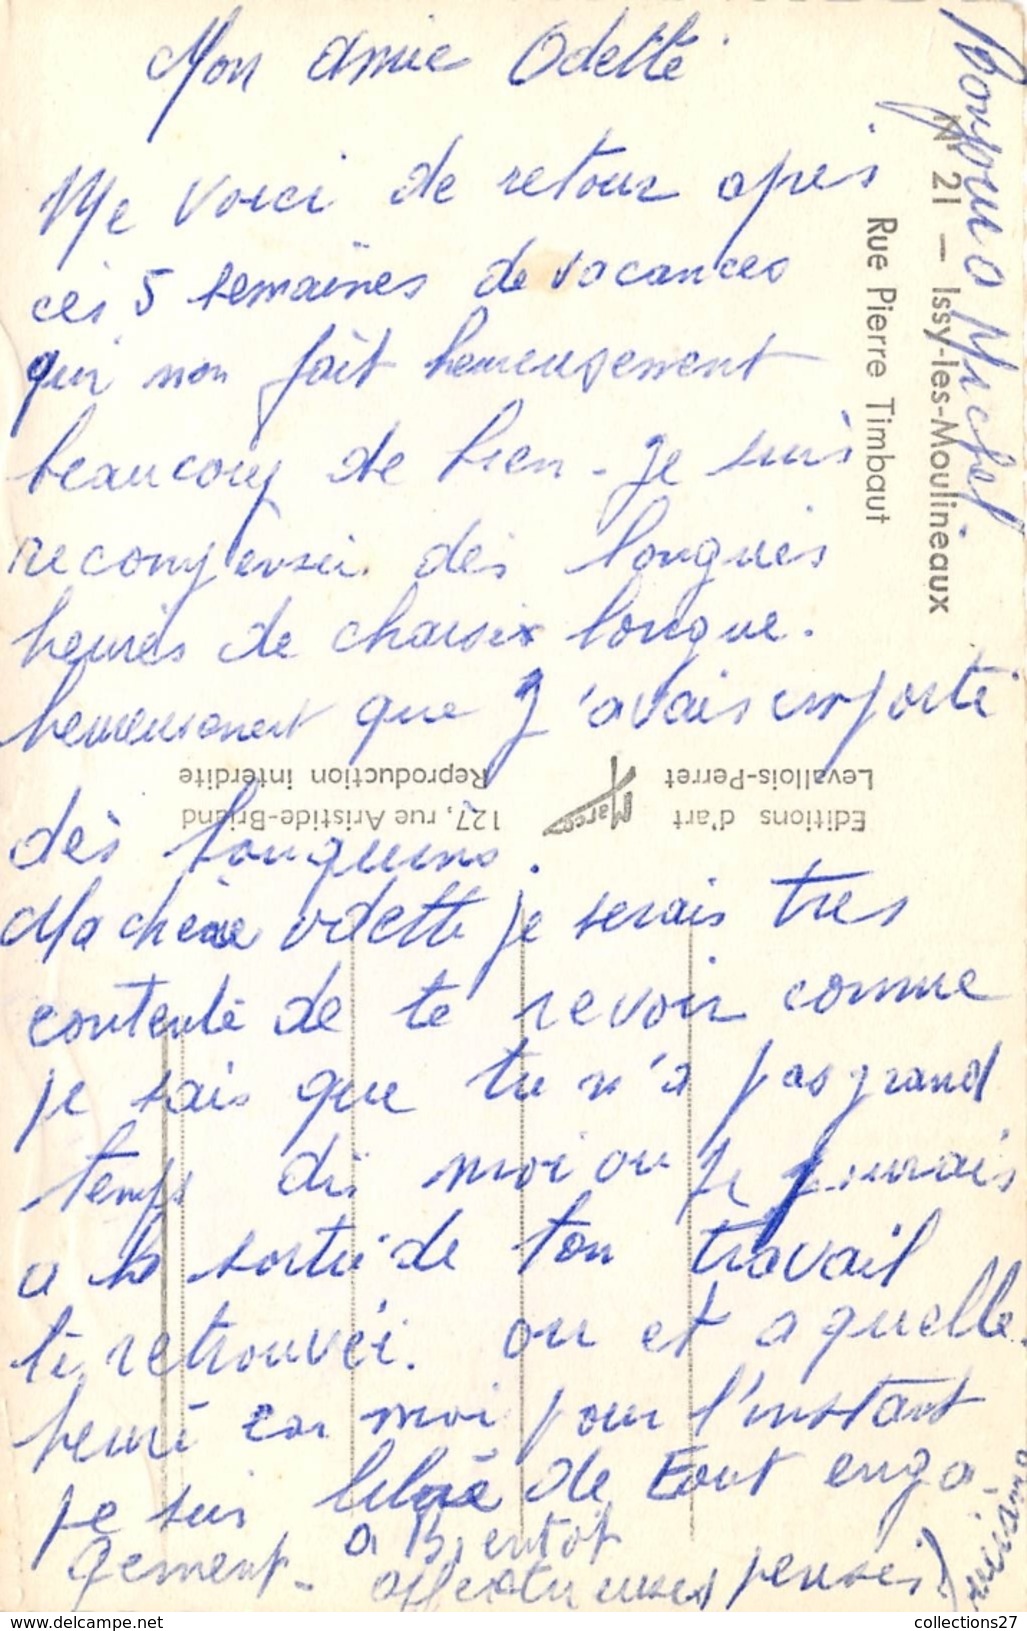 Mon amie Odette
Me voici de retour apres
ces 5 semaines de vacances
qui mon fait heureusement
beaucoup de bien - je suis
recompensée des longues
heures de chaise longue.
heureusement que j'avais emporté
des bouquins.
Ma chère Odette je serais tres
contente de te revoir comme
je sais que tu n'a pas grand
temps dis moi ou je pourais
a la sortie de ton travail
te retrouver. ou et a quelle
heure car moi pour l'instant
je suis libre de tout enga-
gement - a Bientot
affectueuses pensées
Bonjours Michel
N° 21 — Issy-les-Moulineaux
Rue Pierre Timbaut
Editions d'art Marco 127, rue Aristide-Briand
Levallois-Perret Reproduction interdite
collections27